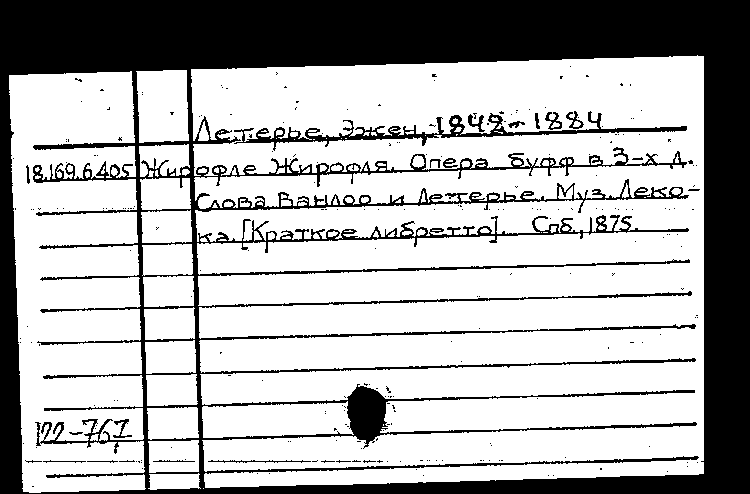 Леттерье, Эжен, 1842-1884
18.169.6.405 Жирофле Жирофля. Опера буфф в 3-х д.
Слова Ванлоо и Леттерье. Муз. Леко-
ка. [Краткое либретто]. Спб., 1875.
122-767